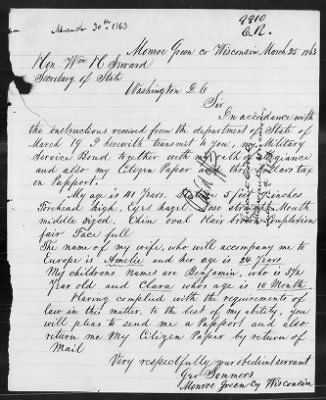 9910
March 30th 1863
Monroe Green Co Wisconsin March 25 1863
Hon. Wm H. Seward
Secretary of State
Washington D. C
Sir
In accordance with
the instructions received from the department of State of
March 19 I herewith transmit to you, my Military
Service Bond together with my oath of Allegiance
and also my Citizen Paper and three dollars tax
on Passport.
My age is 41 Years. 5 feet inches
Forehead High. Eyes hazel. Nose Mouth
middle sized. Chin oval Hair brown Complexion
fair Face full
The name of my wife, who will accompany me to
Europe is Amelie and her age is 24 Years
My childrens Names are Benjamin, who is
Year old and Clara whos age is 10 Month
Having complied with the requirements of
law in this matter, to the best of my ability, you
will pleas to send me a Passport and also
return me My Citizen Paper by return of
Mail
Very respectfully your obedient servant
Geo Sommers
Monroe Green Co Wisconsin